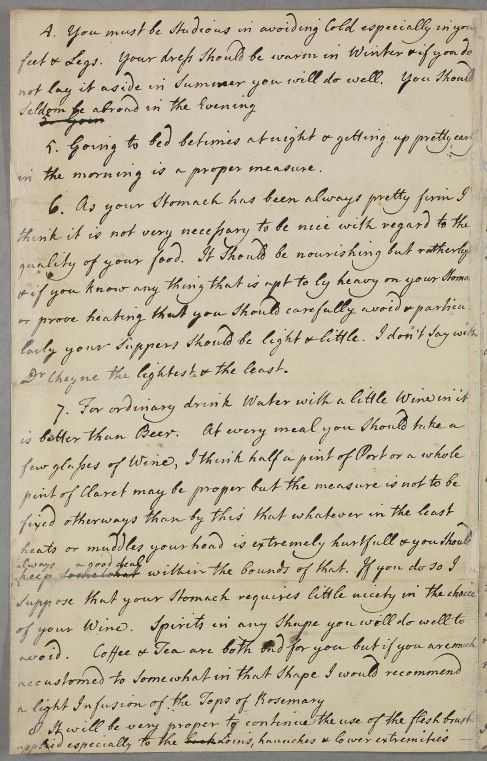 4. You must be studious in avoiding Cold especially in your
feet & Legs. Your dress should be warm in Winter & if you do
not lay it aside in Summer you will do well. You should
seldom be abroad in the Evening
5. Going to bed betimes at night & getting up pretty ear
in the morning is a proper measure.
6. As your Stomach has been always pretty firm I
think it is not very necessary to be nice with regard to the
quality of your food. It should be nourishing but rather li
& if you know any thing that is apt to ly heavy on your Stoma
or prove heating that you should carefully avoid & particu
larly your Suppers should be light & little. I don't say with
Dr Cheyne the lightest & the least.
7. For ordinary drink Water with a little Wine in it
is better than Beer. At every meal you should take a
few glasses of Wine, I think half a pint of Port or a whole
pint of Claret may be proper but the measure is not to be
fixed otherways than by this that whatever in the least
heats or muddles your head is extremely hurtfull & you should
always a good deal
keep within the bounds of that. If you do so I
suppose that your Stomach requires little nicety in the choice
of your Wine. Spirits in any shape you will do well to
avoid. Coffee & Tea are both bad for you but if you are much
accustomed to somewhat in that shape I would recommend
a light Infusion of the Tops of Rosemary
8. It will be very proper to continue the use of the flesh brush
applied especially to the Loins, haunches & lower extremities